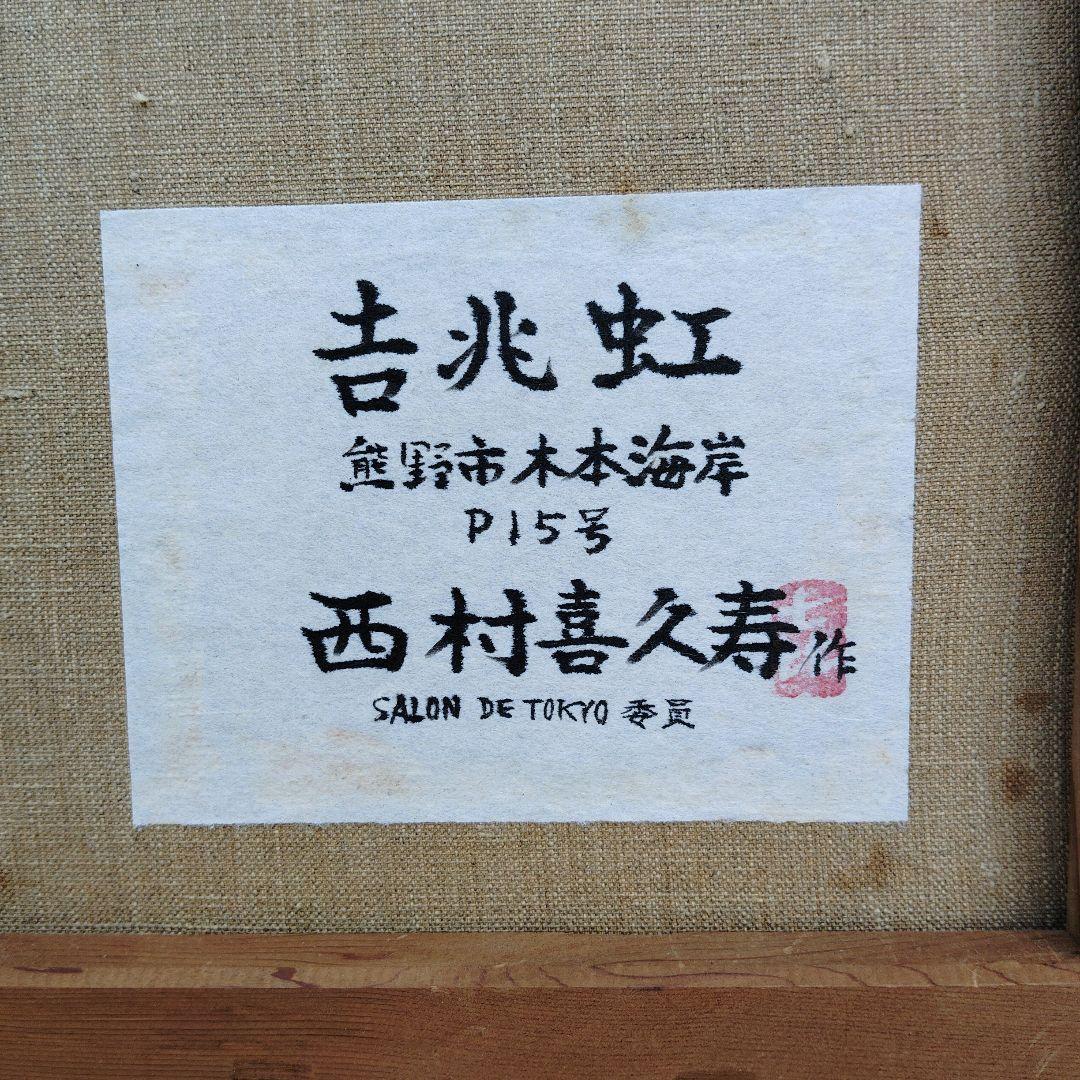 𠮷兆虹
熊野市木本海岸
P15号
西村喜久寿作
SALON DE TOKYO 委員